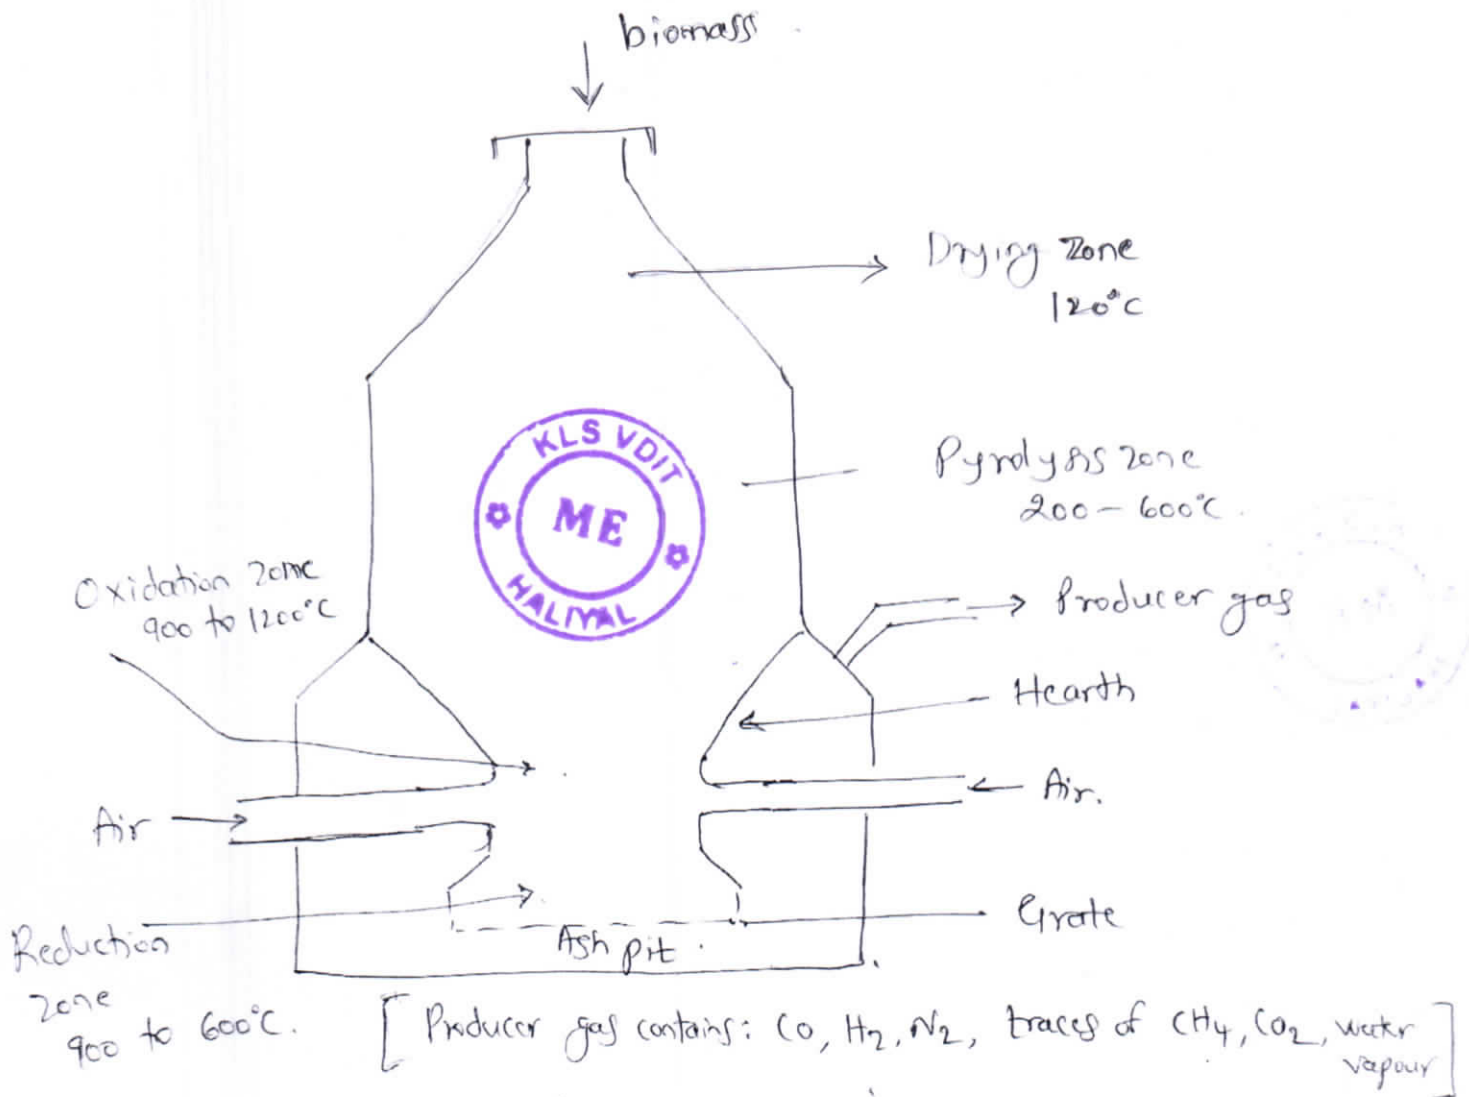 biomass
Drying Zone
120°C
KLS VDIT
ME
HALIYAL
Pyrolysis zone
200 - 600°C.
Oxidation Zone
900 to 1200°C
Producer gas
Hearth
Air
Air.
Reduction
Zone
900 to 600°C.
Grate
Ash pit
[Producer gas contains: CO, H2, N2, traces of CH4, CO2, water
vapour]